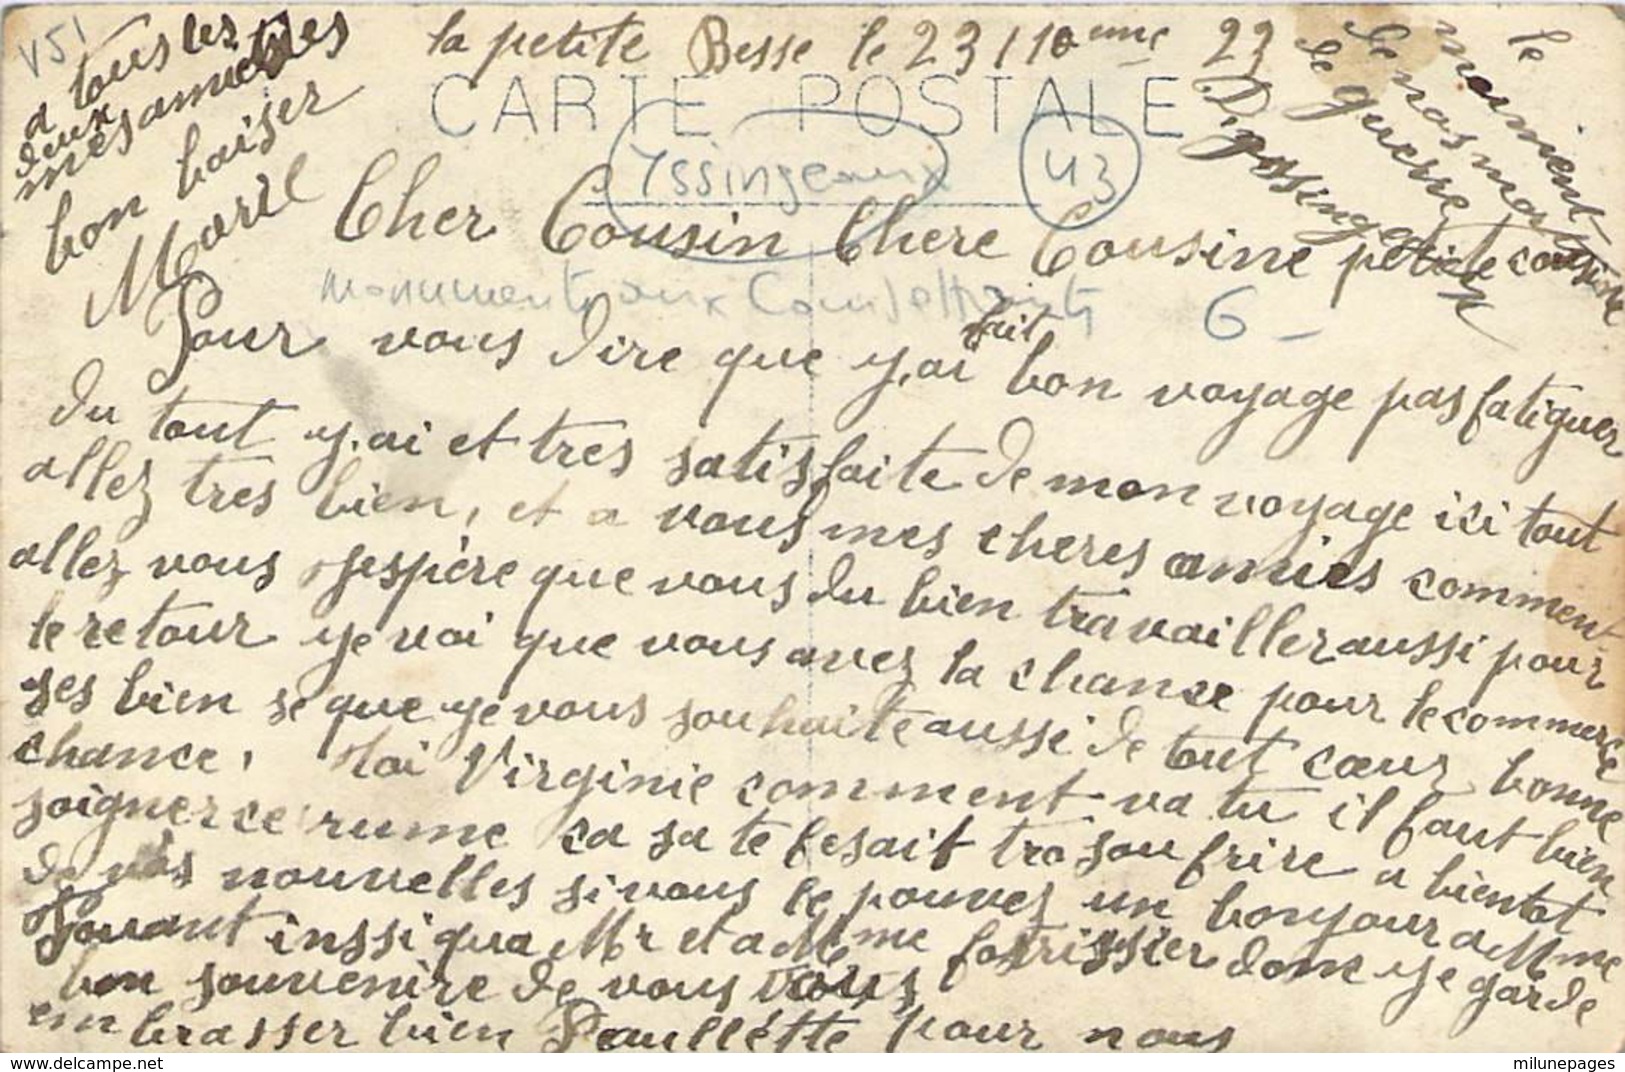 V51
a tous les
deux
mes amities
bon baiser
Marie
la petite Besse le 23/10eme 23
le
monument
de nos morts
de guerre
D'yossingeaux
CARTE POSTALE
Yssingeaux 43
Cher Cousin Chere Cousine petite cousine
monument aux Combattants 6-
Pour vous dire que y,ai fait bon voyage pas fatiguer
du tout y,ai et tres satisfaite de mon voyage ici tout
allez tres bien, et a vous mes cheres amies comment
allez vous jespère que vous du bien travailler aussi pour
le retour ye voi que vous avez la chance pour le commerce
ses bien se que ye vous souhaite aussi de tout cœur bonne
chance, Toi Virginie comment va tu il faut bien
soigner ce rume ca sa te fesait tro soufrire a bientot
de vos nouvelles si vous le pouvez un bonjour a Mme
Fouant inssi qua Mr et a Mme donc ye garde
bon souvenire de vous tous
embrasser bien Paullette pour nous
milunepages